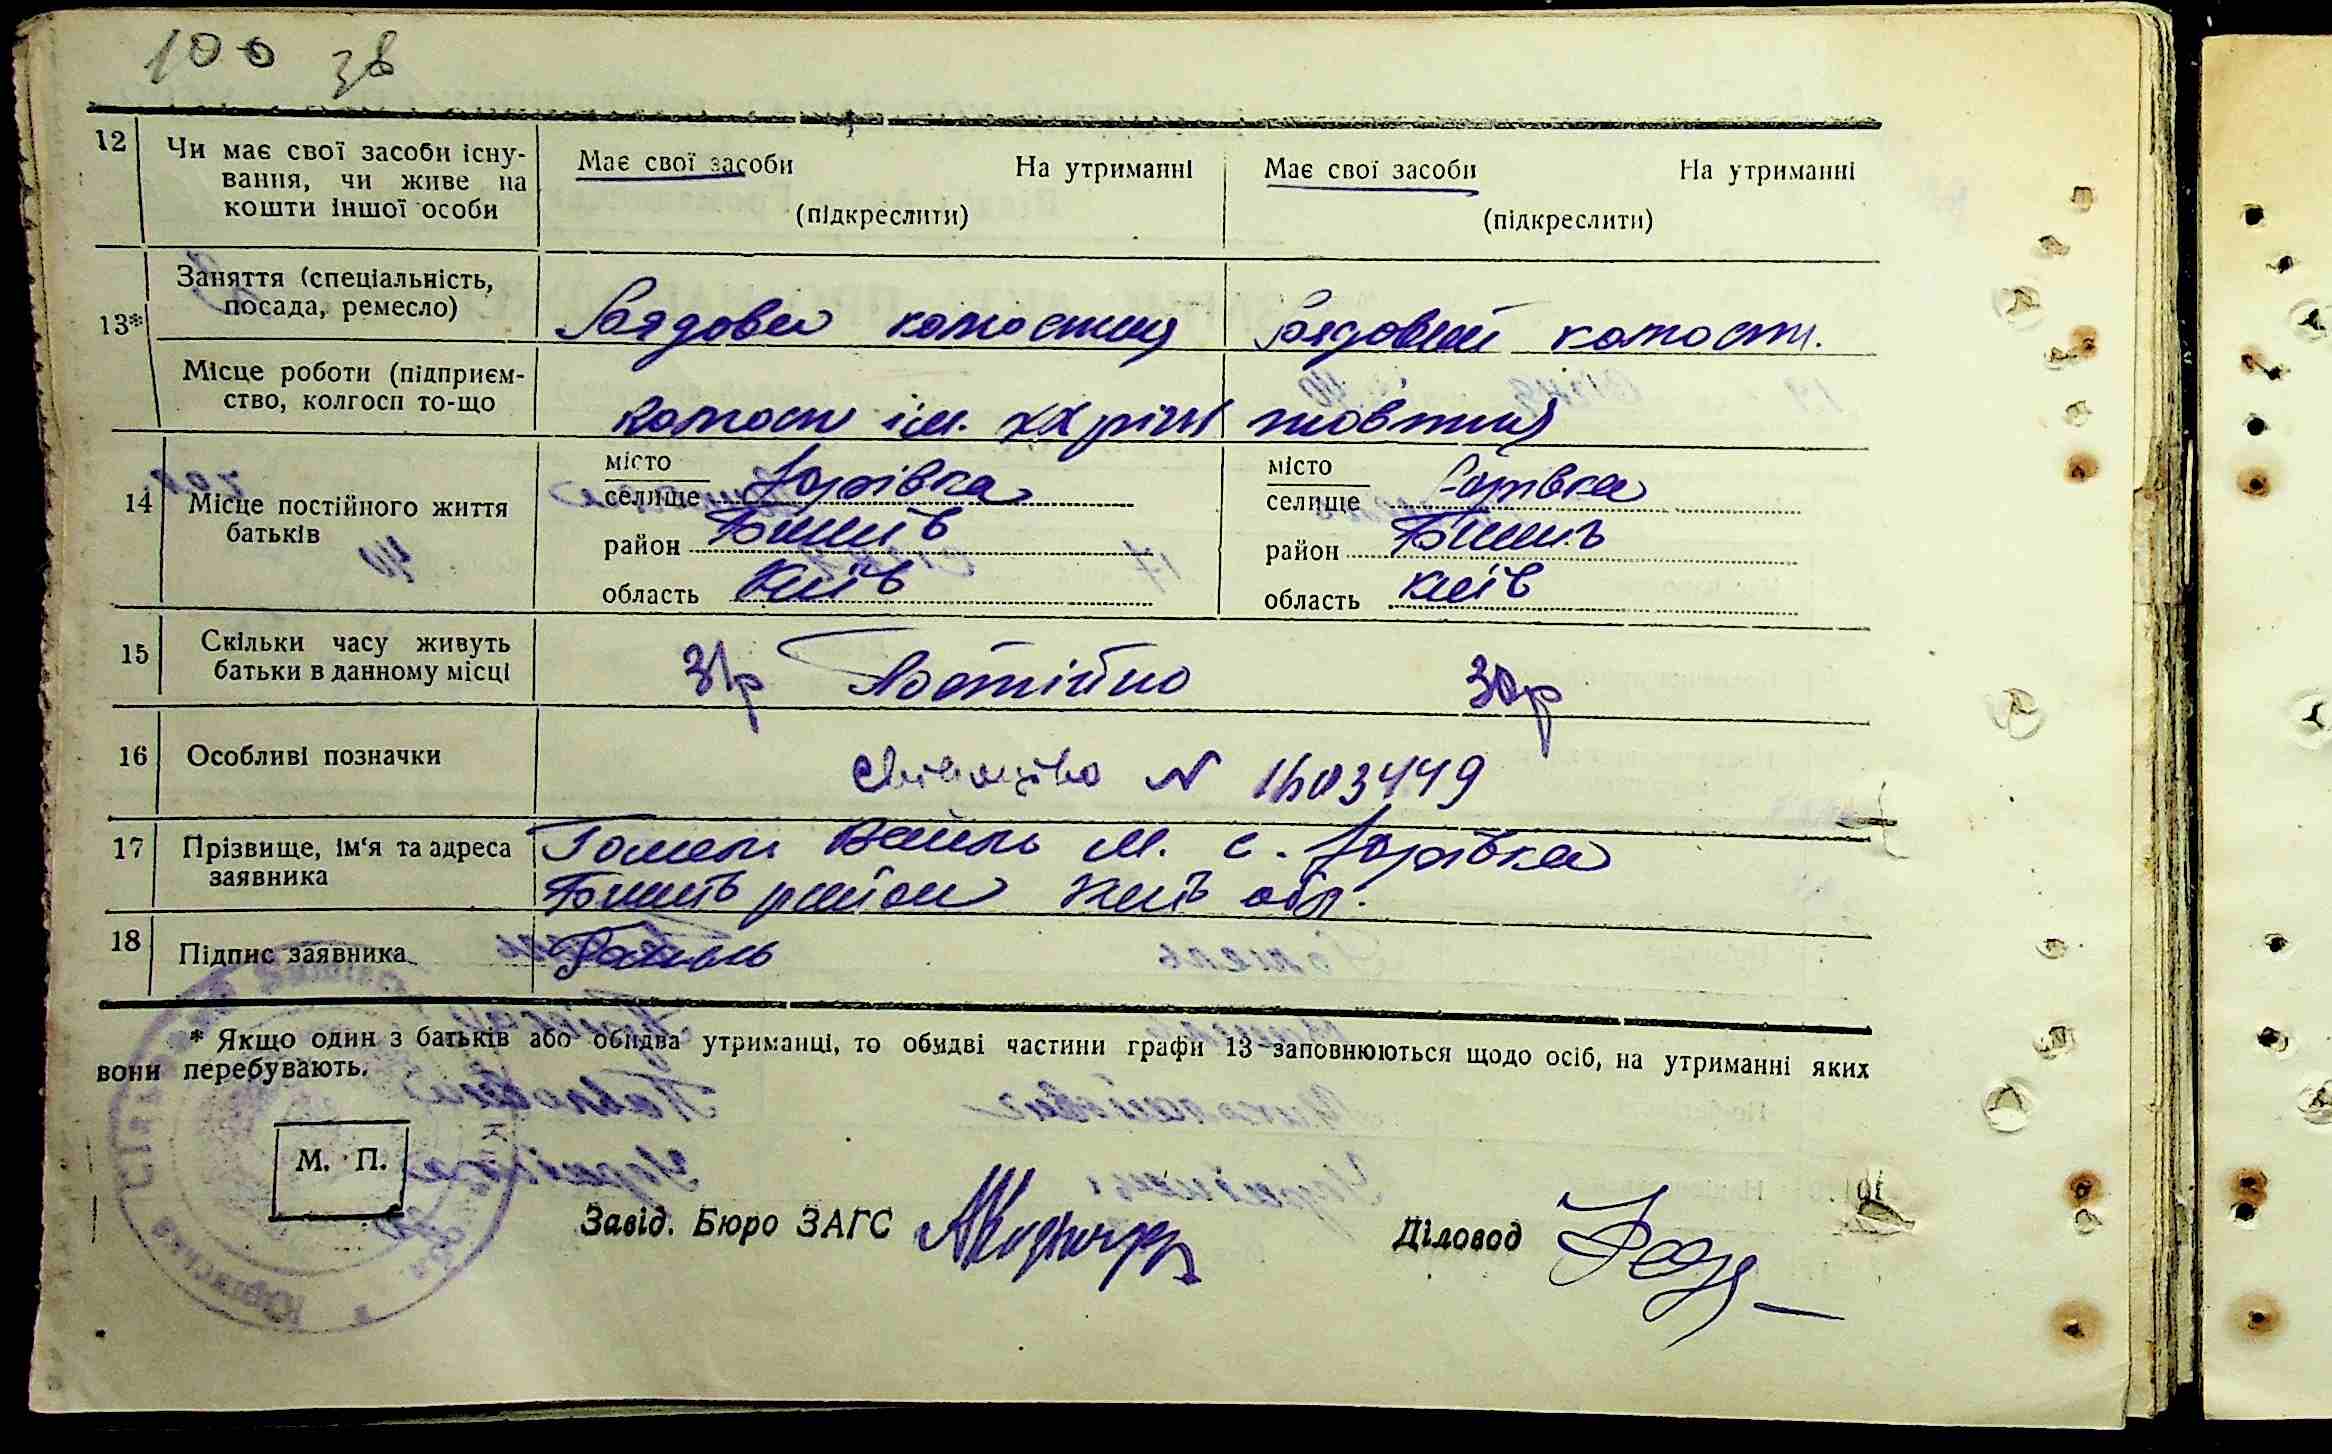 100 зв
12 Чи має свої засоби існу-
вання, чи живе на
кошти іншої особи
Має свої засоби На утриманні
(підкреслити)
Має свої засоби На утриманні
(підкреслити)
13* Заняття (спеціальність,
посада, ремесло)
Рядова колгоспниця
Рядовий колгосп.
Місце роботи (підприєм-
ство, колгосп то-що
колгосп ім. ХХ річчя жовтня
14 Місце постійного життя
батьків
місто
селище Юрівка
район Бишів
область Київ
місто
селище Юрівка
район Бишів
область Київ
15 Скільки часу живуть
батьки в данному місці
31р Постійно 30р
16 Особливі позначки
Свідоцтво N 1603449
17 Прізвище, ім'я та адреса
заявника
Гомель М. с. Юрівка
Бишів район Київ обл.
18 Підпис заявника
* Якщо один з батьків або обидва утриманці, то обидві частини графи 13 заповнюються щодо осіб, на утриманні яких
вони перебувають.
М. П.
Завід. Бюро ЗАГС
Діловод